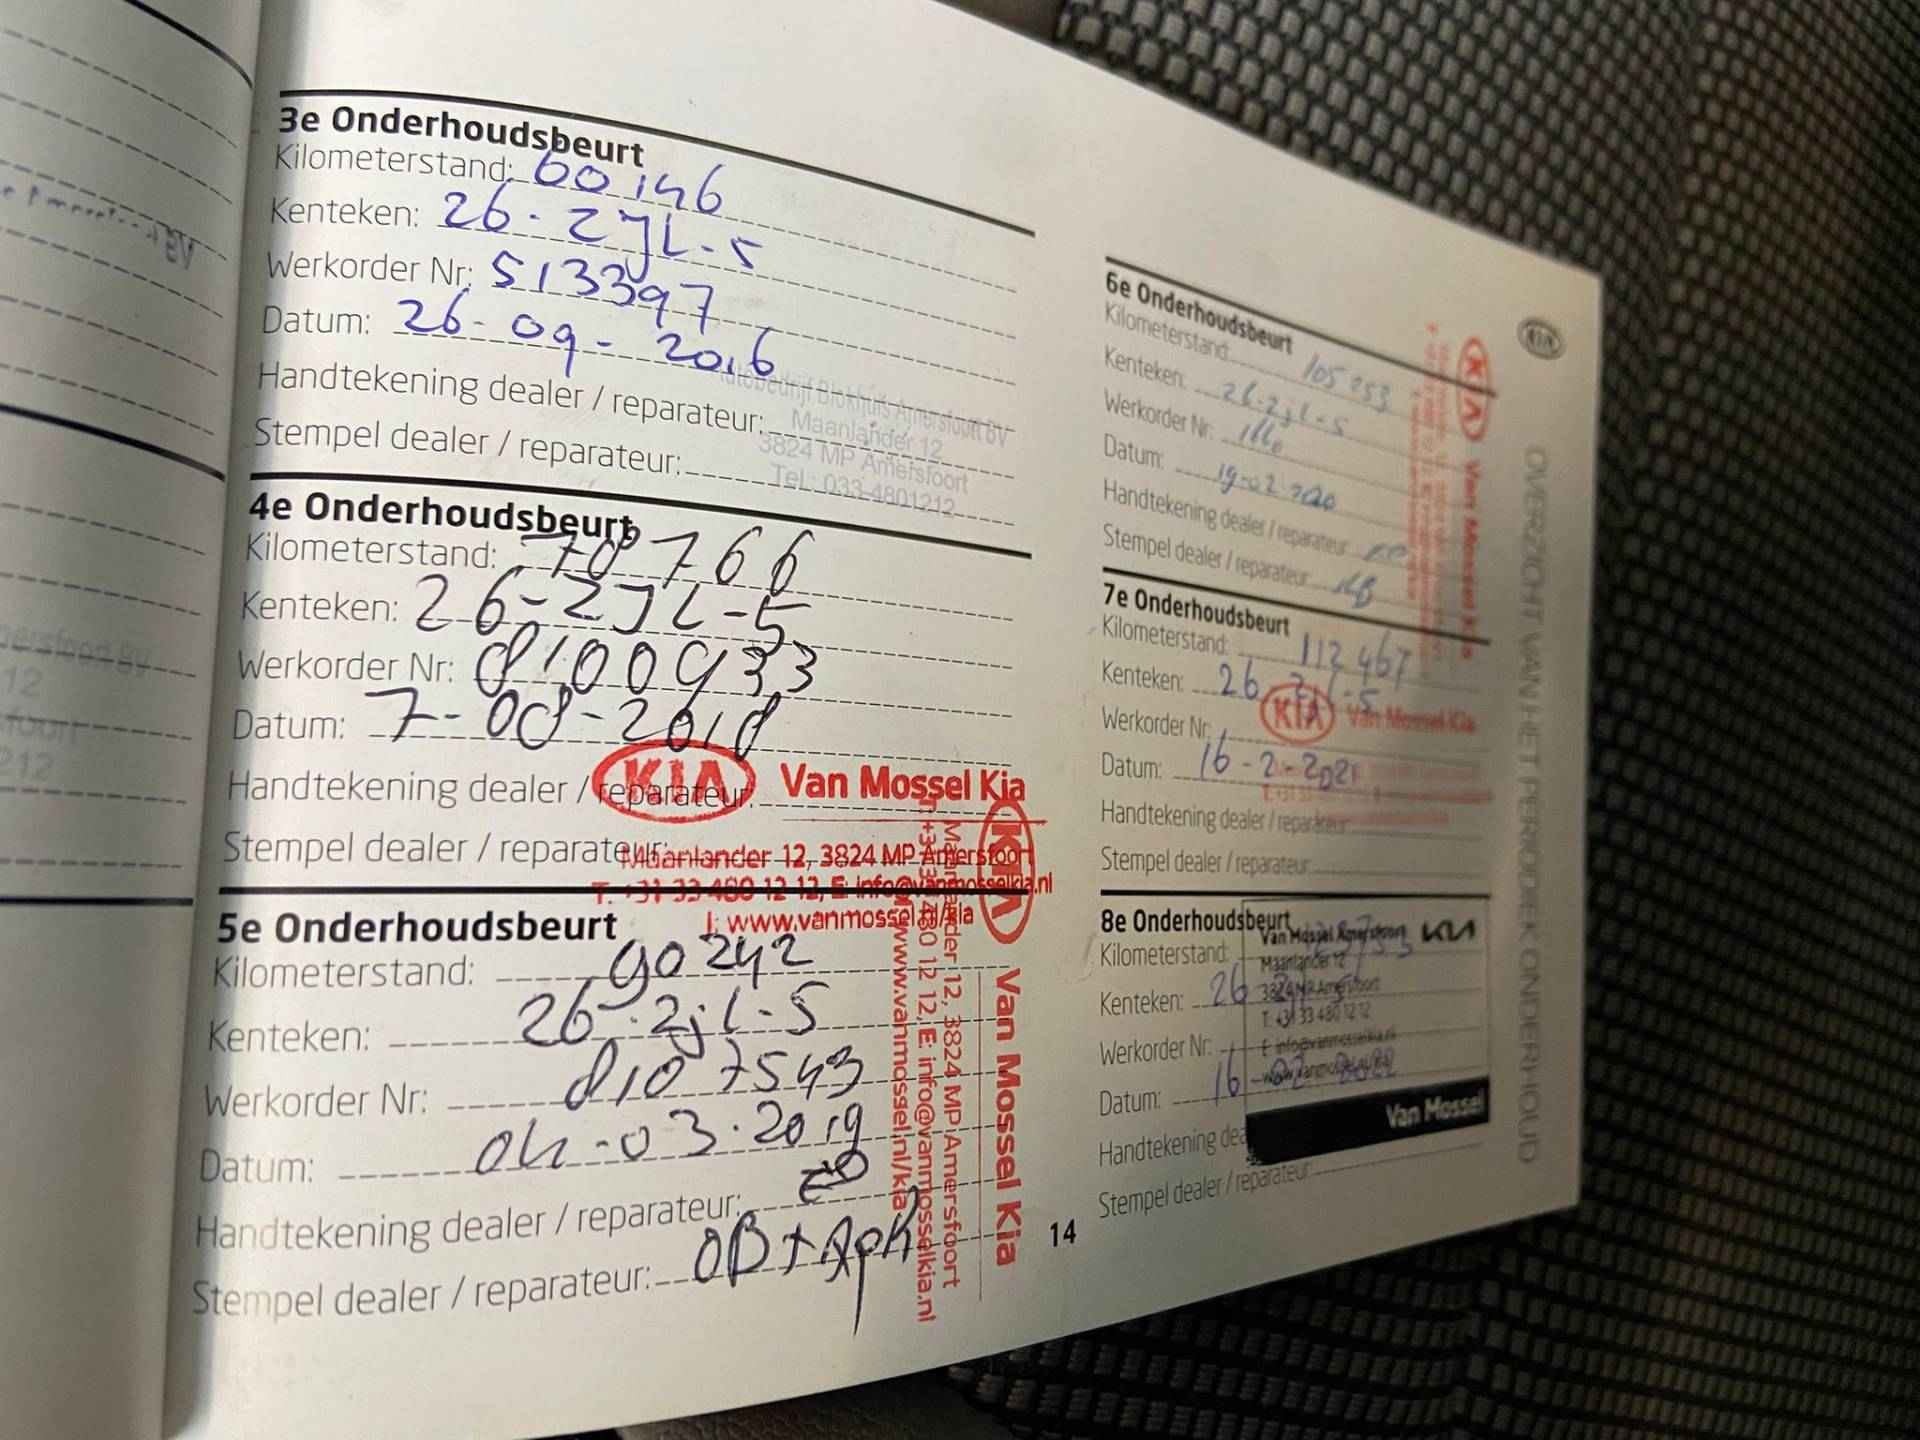 3e Onderhoudsbeurt
Kilometerstand: 60146
Kenteken: 26-ZJL-5
Werkorder Nr: 513397
Datum: 26-09-2016
Handtekening dealer / reparateur:
Autobedrijf Blokhuis Amersfoort BV
Maanlander 12
Stempel dealer / reparateur:
3824 MP Amersfoort
Tel.: 033-4801212
4e Onderhoudsbeurt
Kilometerstand: 78766
Kenteken: 26-ZJL-5
Werkorder Nr: 8100933
Datum: 7-08-2018
Handtekening dealer / reparateur:
KIA Van Mossel Kia
Stempel dealer / reparateur:
Maanlander 12, 3824 MP Amersfoort
T. +31 33 480 12 12, E: info@vanmosselkia.nl
I: www.vanmossel.nl/kia
5e Onderhoudsbeurt
Kilometerstand: 90242
Kenteken: 26-zjl-5
Werkorder Nr: 8107543
Datum: 04-03-2019
Handtekening dealer / reparateur:
Stempel dealer / reparateur: OB + Apk
KIA Van Mossel Kia
Maanlander 12, 3824 MP Amersfoort
T. +31 33 480 12 12, E: info@vanmosselkia.nl
I: www.vanmossel.nl/kia
14
6e Onderhoudsbeurt
Kilometerstand: 105253
Kenteken: 26-zjl-5
Werkorder Nr:
Datum: 19-02-2020
Handtekening dealer / reparateur
Stempel dealer / reparateur:
KIA Van Mossel Kia
7e Onderhoudsbeurt
Kilometerstand: 112467
Kenteken: 26 5
KIA Van Mossel Kia
Werkorder Nr:
Datum: 16-2-2021
Handtekening dealer / reparateur:
Stempel dealer / reparateur:
8e Onderhoudsbeurt
Kilometerstand:
Kenteken: 26
Werkorder Nr:
Datum: 16-02
Handtekening dea
Stempel dealer / reparateur:
Van Mossel Amersfoort KIA
Maanlander 12
3824 MP Amersfoort
T. +31 33 480 12 12
E: info@vanmosselkia.nl
Van Mossel
KIA
OVERZICHT VAN HET PERIODIEK ONDERHOUD